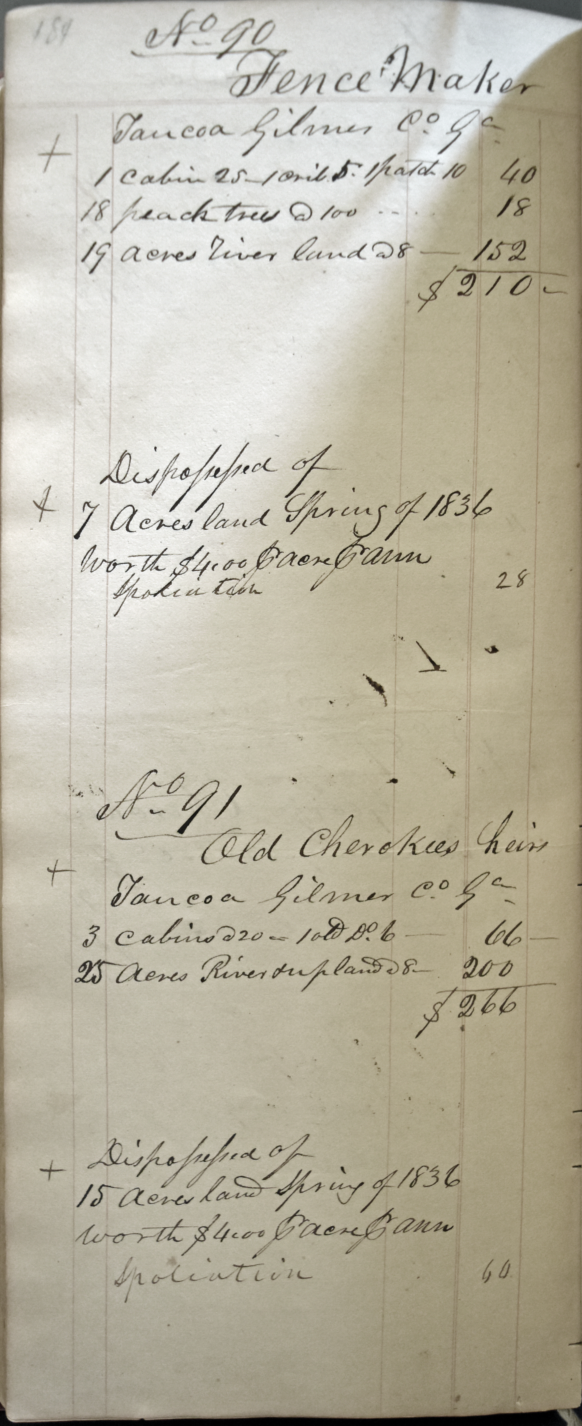 184
No 90
Fence Maker
Taucoa Gilmer Co Ga
+
1 cabin 25 - 1 crib 5. 1 patch 10 40
18 peach trees @ 100 .... 18
19 acres River land @ 8 — 152
$ 210 -
Dispossessed of
+ 7 Acres land Spring of 1836
Worth $4.00 P acre P ann
Spoliation 28
No 91
Old Cherokees heirs
+
Taucoa Gilmer Co Ga
3 cabins @ 20 - 1 old Do. 6 — 66 —
25 Acres River & upland @ 8 — 200
$ 266
+ Dispossessed of
15 Acres land Spring of 1836
Worth $4.00 P acre P ann
Spoliation 60